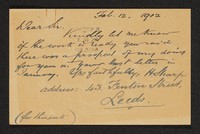 Feb. 12. 1902
Dear Sir.
Kindly let me know
if the work is ready you said
there was a prospect of my doing
for you in your last letter in
January. Yrs faithfully, H. Sharp
address: 43, Fenton Street,
Leeds.